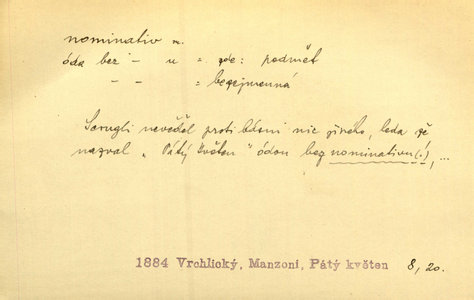 nominativ m.
óda bez – u = zde: podmět
– – = bezejmenná
Scrugli nevěděl proti básni nic jiného, leda že
nazval „Pátý květen" ódou bez nominativu (!), ...
1884 Vrchlický, Manzoni, Pátý květen 8, 20.